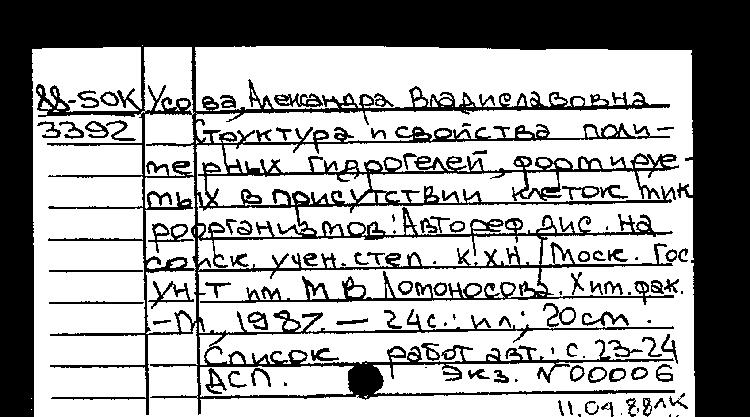 88-50К Усова, Александра Владиславовна
3392 Структура и свойства поли-
мерных гидрогелей, формируе-
мых в присутствии клеток мик
роорганизмов: Автореф. дис. на
соиск. учен. степ. к.х.н. / Моск. Гос.
ун-т им. М.В. Ломоносова. Хим. фак.
-М., 1987. — 24с.: ил.; 20см.
Список работ авт.: с. 23-24
ДСП. Экз. N 00006
11.04.88лк